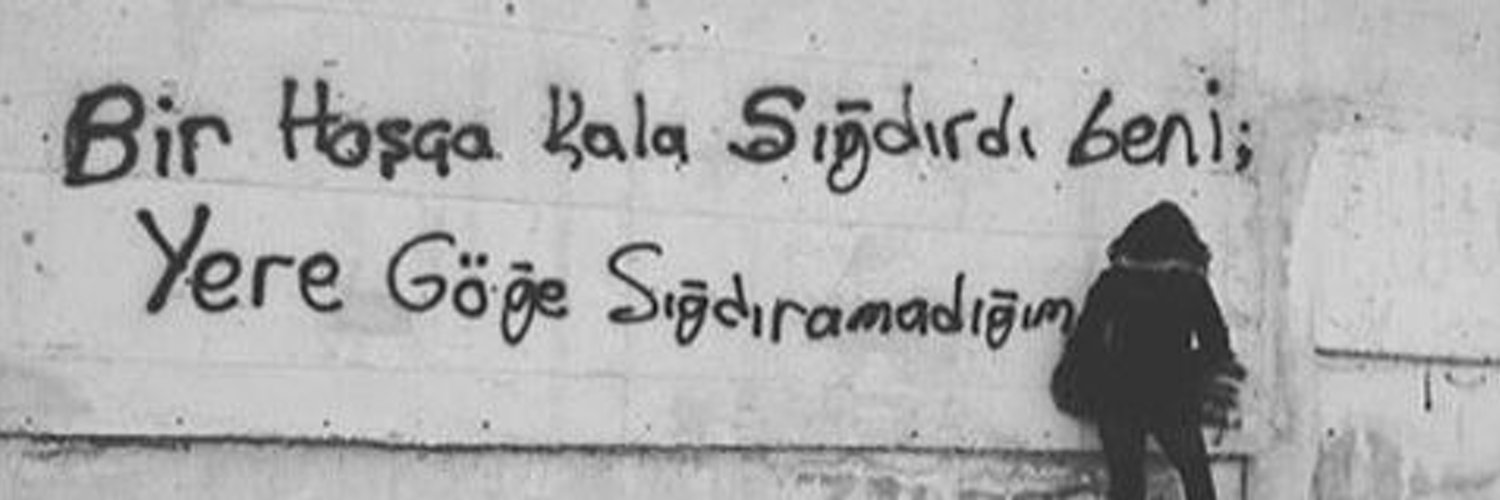 Bir Hoşça Kala Sığdırdı beni;
Yere Göğe Sığdıramadığım